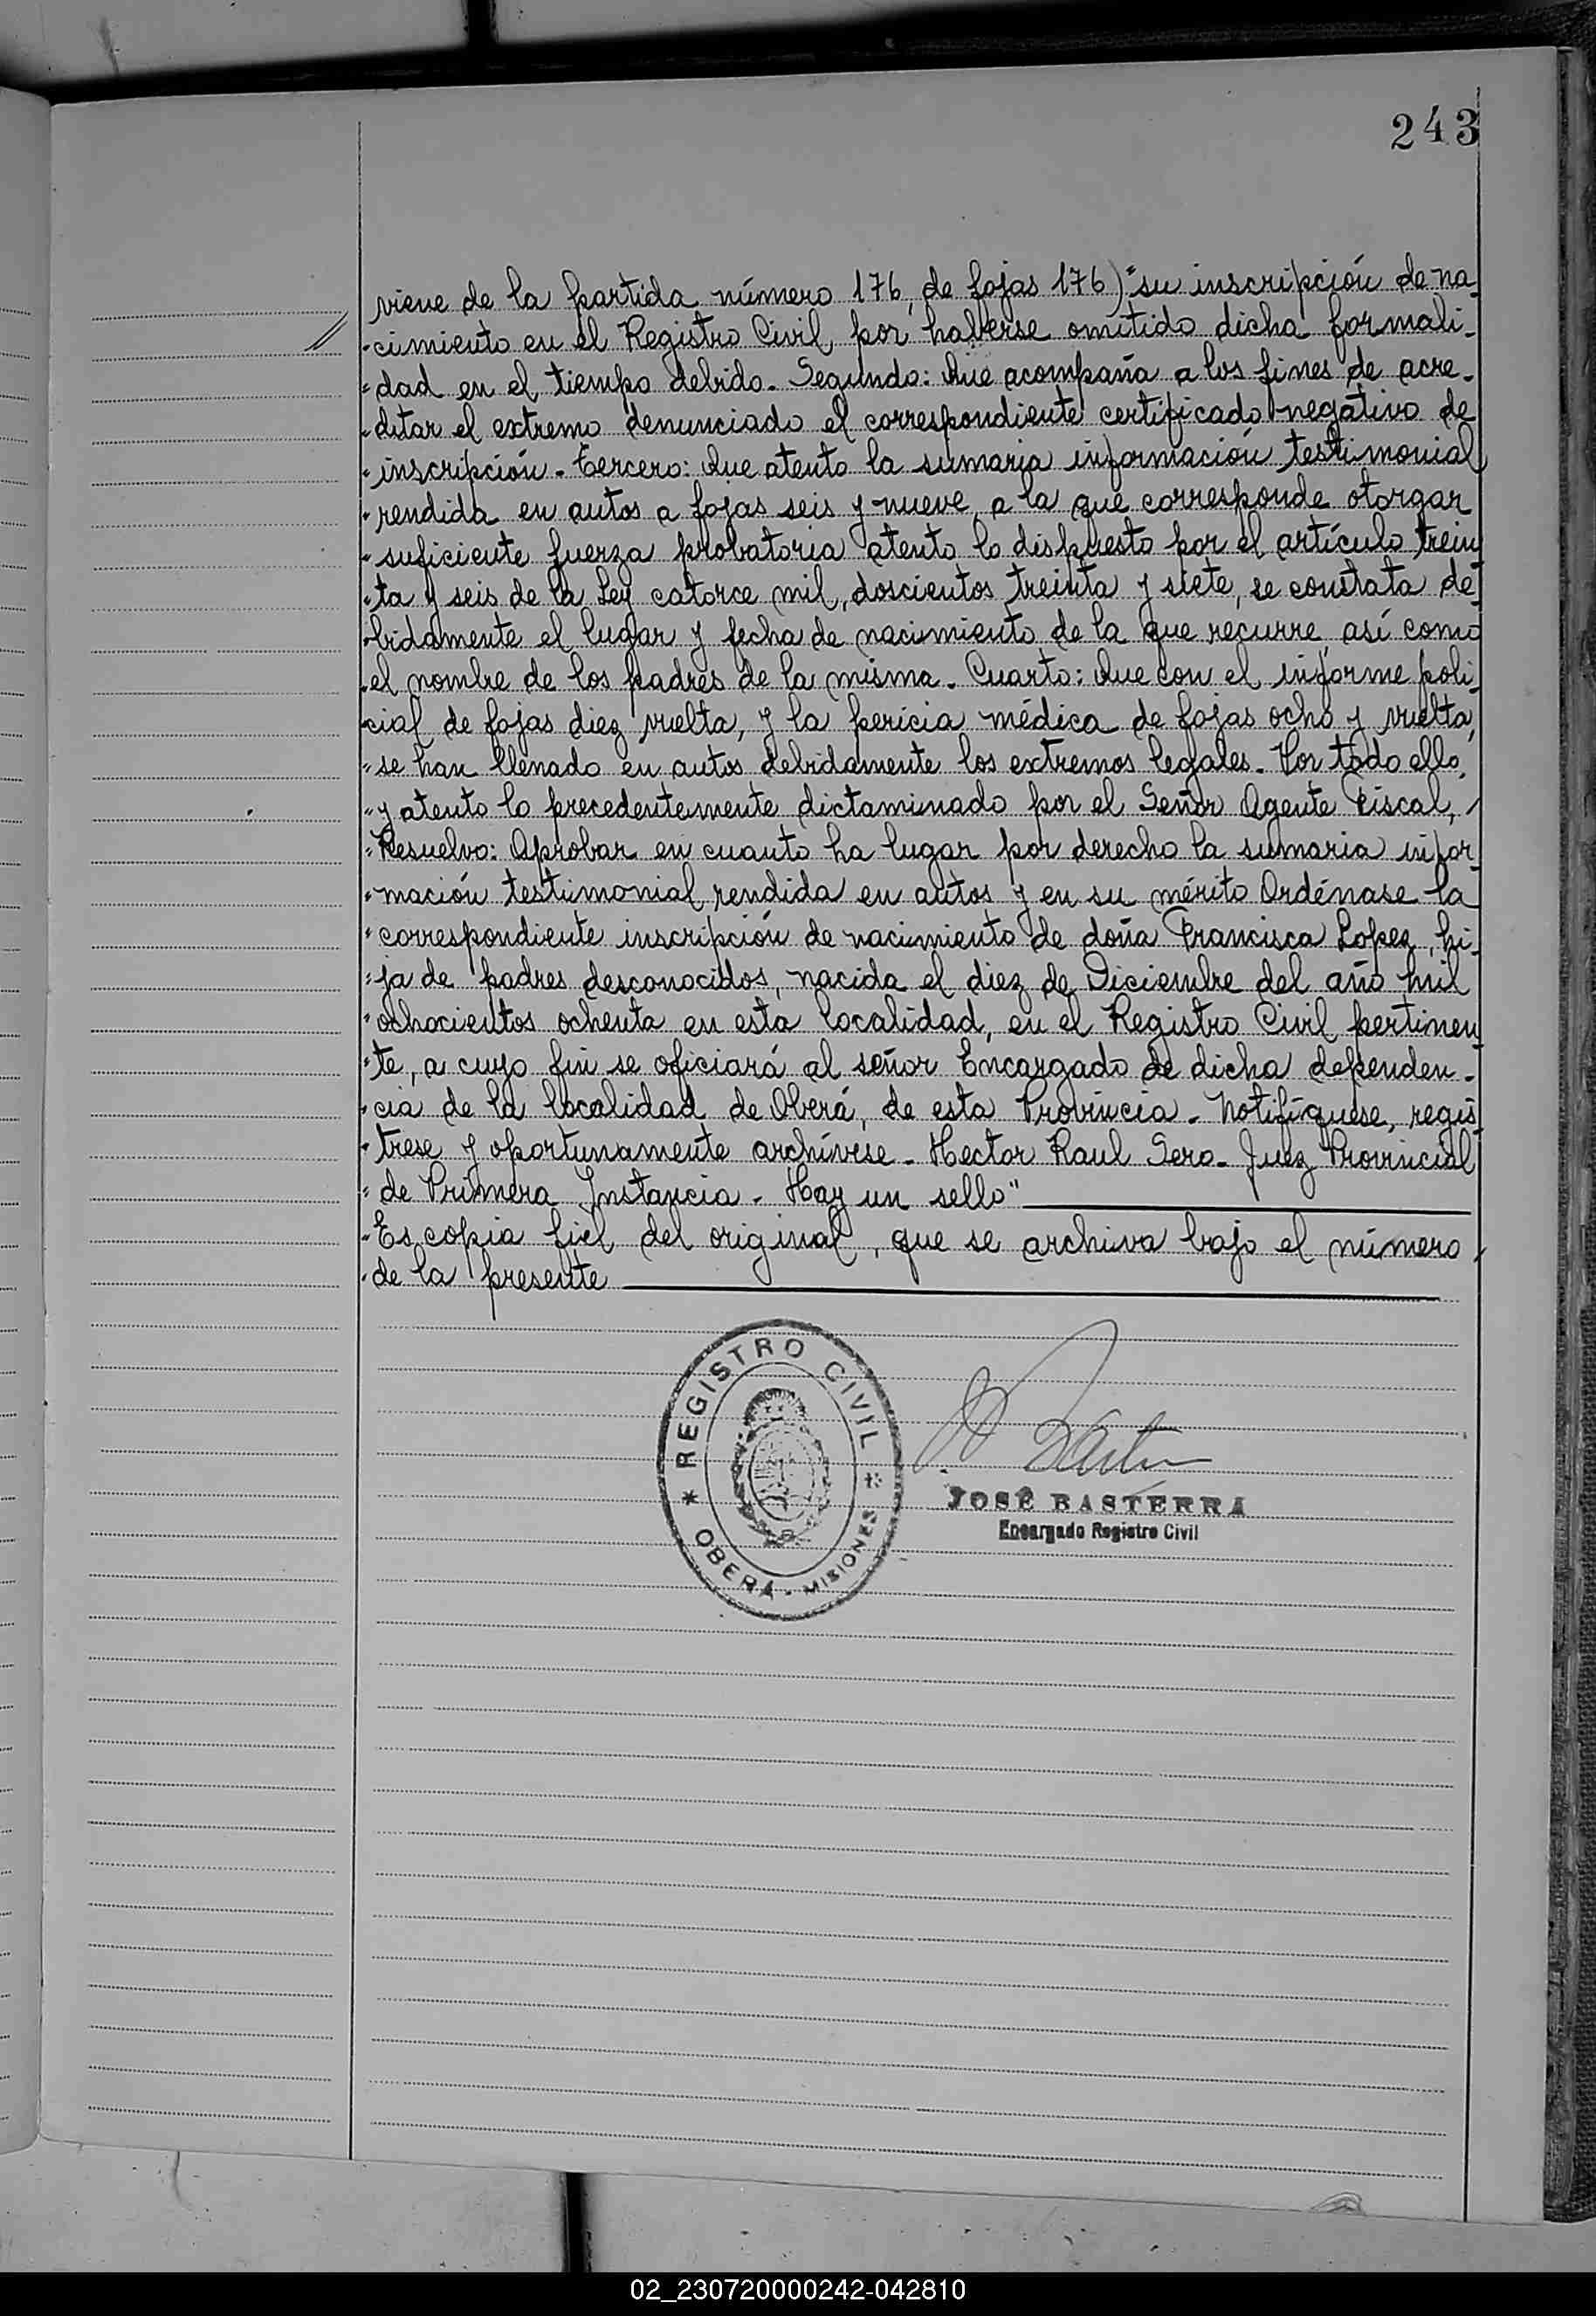 243
viene de la partida número 176, de fojas 176) "su inscripción de na-
"cimiento en el Registro Civil, por haberse omitido dicha formali-
"dad en el tiempo debido. Segundo: Que acompaña a los fines de acre-
"ditar el extremo denunciado el correspondiente certificado negativo de
"inscripción. Tercero: Que atento la sumaria información testimonial
"rendida en autos a fojas seis y nueve, a la que corresponde otorgar
"suficiente fuerza probatoria atento lo dispuesto por el artículo trein
"ta y seis de la Ley catorce mil, doscientos treinta y siete, se constata de-
"bidamente el lugar y fecha de nacimiento de la que recurre, así como
"el nombre de los padres de la misma. Cuarto: Que con el informe poli-
"cial de fojas diez vuelta, y la pericia médica de fojas ocho y vuelta,
"se han llenado en autos debidamente los extremos legales. Por todo ello,
"y atento lo precedentemente dictaminado por el Señor Agente Fiscal, /
"Resuelvo: Aprobar en cuanto ha lugar por derecho la sumaria infor-
"mación testimonial rendida en autos y en su mérito Ordénase la
"correspondiente inscripción de nacimiento de doña Francisca Lopez, hi-
"ja de padres desconocidos, nacida el diez de Diciembre del año mil
"ochocientos ochenta en esta localidad, en el Registro Civil pertinen
"te, a cuyo fin se oficiará al señor Encargado de dicha dependen-
"cia de la localidad de Oberá, de esta Provincia. Notifíquese, regís
"trese y oportunamente archívese. Hector Raul Sero. Juez Provincial
"de Primera Instancia. Hay un sello"
"Es copia fiel del original, que se archiva bajo el número /
"de la presente
REGISTRO CIVIL
OBERÁ - MISIONES
JOSÉ BASTERRA
Encargado Registro Civil
02_230720000242-042810